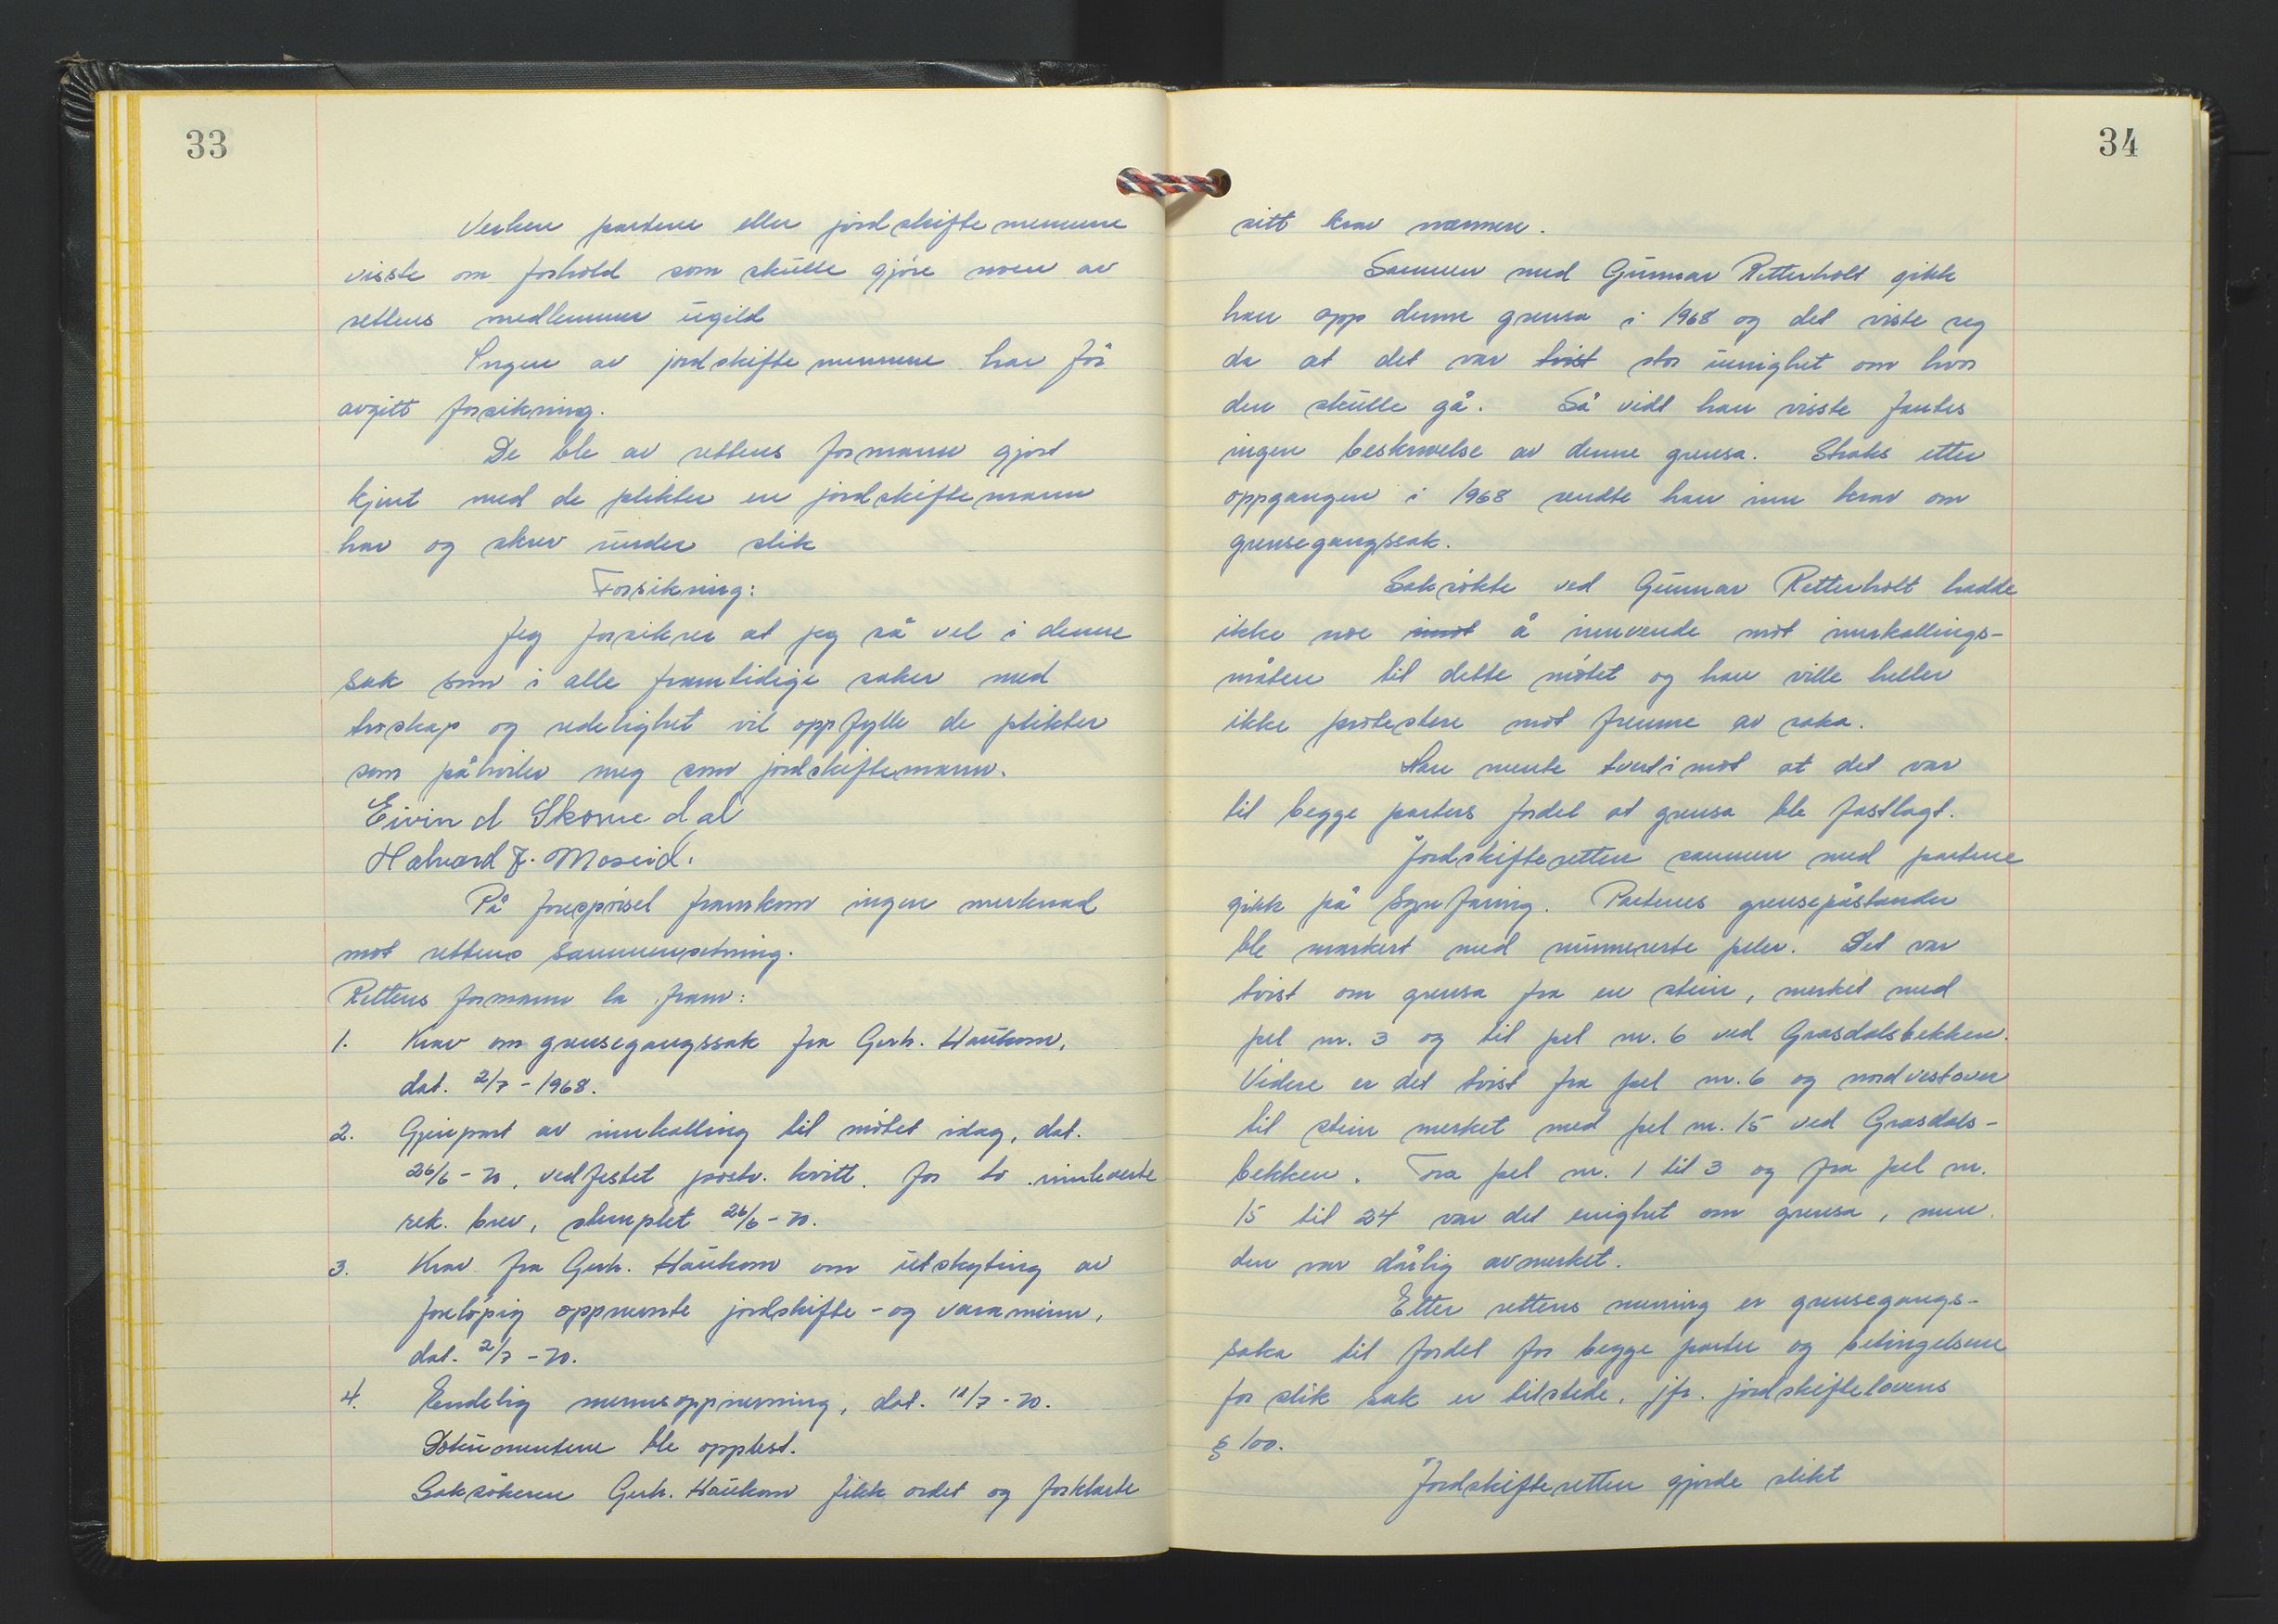 33
Verken partene eller jordskiftemennene
visste om forhold som skulle gjøre noen av
rettens medlemmer ugild
Ingen av jordskiftemennene har før
avgitt forsikring.
De ble av rettens formann gjort
kjent med de plikter en jordskiftemann
har og skrev under slik
Forsikring:
Jeg forsikrer at jeg så vel i denne
sak som i alle framtidige saker med
troskap og redelighet vil oppfylle de plikter
som påhviler meg som jordskiftemann.
Eivind Skomedal
Halvard F. Moseid.
På forespørsel framkom ingen merknad
mot rettens sammensetning.
Rettens formann la fram:
1. Krav om grensegangssak fra Gerh. Haukom,
dat. 2/7-1968.
2. Gjenpart av innkalling til møtet idag, dat.
26/6-70, vedfestet postv. kvitt. for to innleverte
rek. brev, stemplet 26/6-70.
3. Krav fra Gerh. Haukom om utskyting av
foreløpig oppnevnte jordskifte- og varamenn,
dat. 2/7-70.
4. Endelig mennsoppnevning, dat. 11/7-70.
Dokumentene ble opplest.
Saksøkeren Gerh. Haukom fikk ordet og forklarte
34
sitt krav nærmere.
Sammen med Gunnar Retterholt gikk
han opp denne grensa i 1968 og det viste seg
da at det var tvist stor uenighet om hvor
den skulle gå. Så vidt han visste fantes
ingen beskrivelse av denne grensa. Straks etter
oppgangen i 1968 sendte han inn krav om
grensegangssak.
Saksøkte ved Gunnar Retterholt hadde
ikke noe imot å innvende mot innkallings-
måten til dette møtet og han ville heller
ikke protestere mot fremme av saka.
Han mente tvertimot at det var
til begge parters fordel at grensa ble fastlagt.
Jordskifteretten sammen med partene
gikk på synfaring. Partenes grensepåstander
ble markert med nummererte peler. Det var
tvist om grensa fra en stein, merket med
pel nr. 3 og til pel nr. 6 ved Grasdalsbekken.
Videre er det tvist fra pel nr. 6 og nordvestover
til stein merket med pel nr. 15 ved Grasdals-
bekken. Fra pel nr. 1 til 3 og fra pel nr.
15 til 24 var det enighet om grensa, men
den var dårlig avmerket.
Etter rettens mening er grensegangs-
saka til fordel for begge parter og betingelsene
for slik sak er tilstede, jfr. jordskiftelovens
§ 100.
Jordskifteretten gjorde slikt